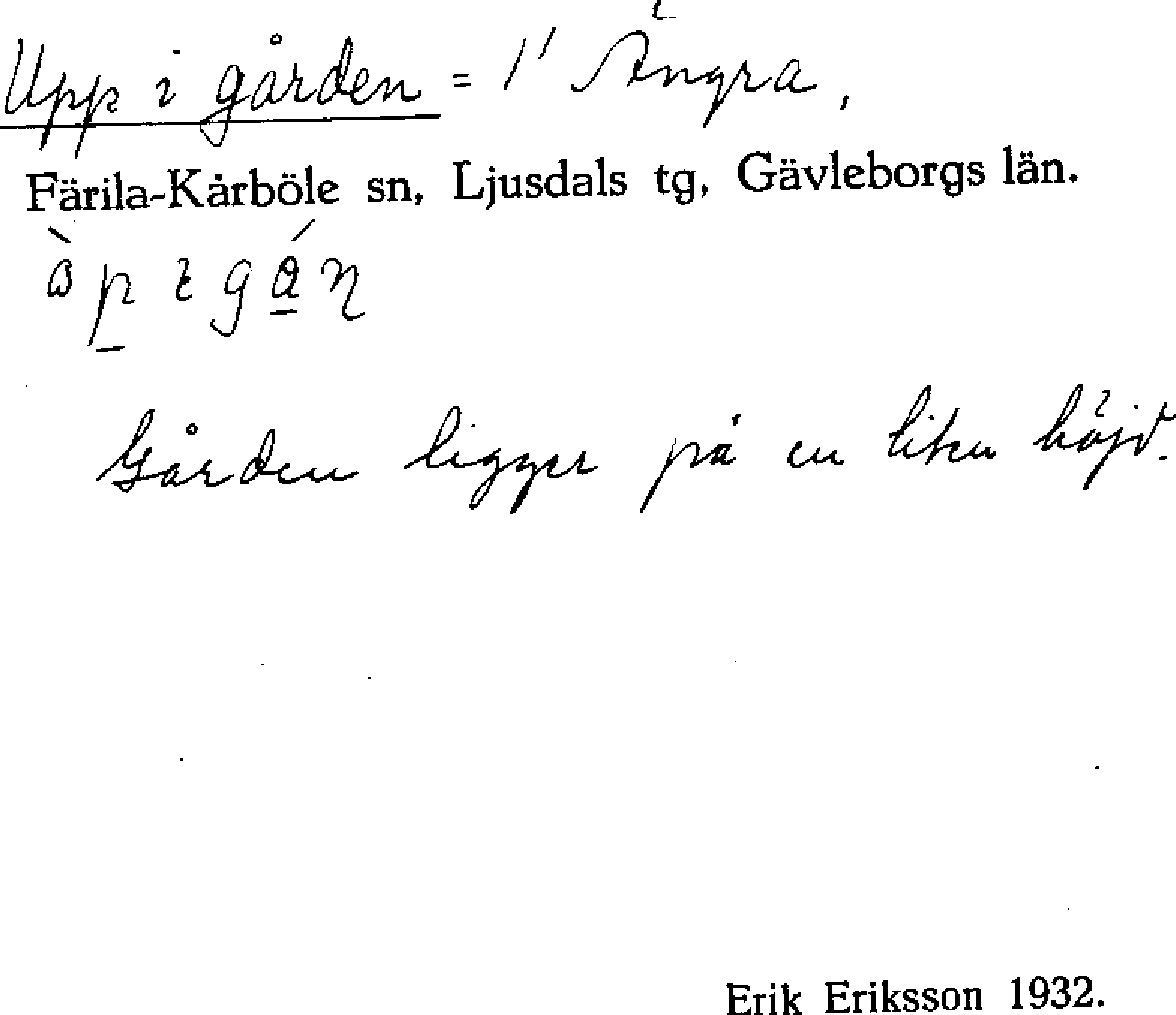 Upp i gården = 1' Ängra,
Färila-Kårböle sn, Ljusdals tg, Gävleborgs län.
Gården ligger på en liten höjd.
Erik Eriksson 1932.